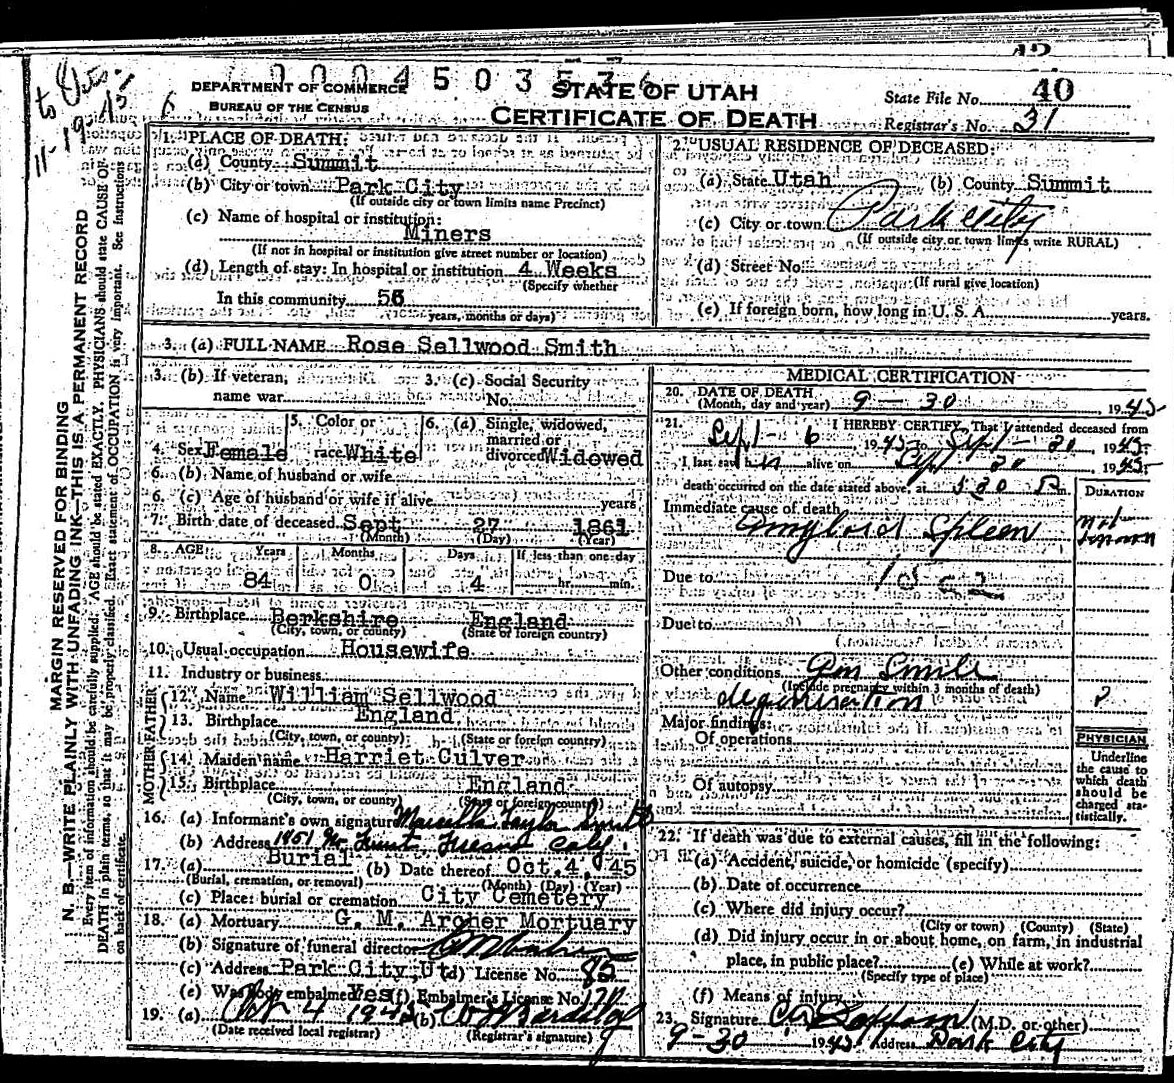 42
0004503536
DEPARTMENT OF COMMERCE
BUREAU OF THE CENSUS
STATE OF UTAH
CERTIFICATE OF DEATH
State File No. 40
Registrar's No. 31
MARGIN RESERVED FOR BINDING
N. B.—WRITE PLAINLY WITH UNFADING INK—THIS IS A PERMANENT RECORD
Every item of information should be carefully supplied. AGE should be stated EXACTLY. PHYSICIANS should state CAUSE OF
DEATH in plain terms, so that it may be properly classified. Exact statement of OCCUPATION is very important. See instructions
on back of certificate.
1. PLACE OF DEATH:
(a) County Summit
(b) City or town Park City
(If outside city or town limits name Precinct)
(c) Name of hospital or institution:
Miners
(If not in hospital or institution give street number or location)
(d) Length of stay: In hospital or institution 4 Weeks
(Specify whether
In this community 56
years, months or days)
2. USUAL RESIDENCE OF DECEASED:
(a) State Utah (b) County Summit
(c) City or town Park City
(If outside city or town limits write RURAL)
(d) Street No.
(If rural give location)
(e) If foreign born, how long in U. S. A. years.
3. (a) FULL NAME Rose Sellwood Smith
3. (b) If veteran, name war
3. (c) Social Security No.
4. Sex Female
5. Color or race White
6. (a) Single, widowed, married or divorced Widowed
6. (b) Name of husband or wife
6. (c) Age of husband or wife if alive years
7. Birth date of deceased Sept 27 1861
(Month) (Day) (Year)
8. AGE Years Months Days If less than one day
84 0 4 hr. min.
9. Birthplace Berkshire England
(City, town, or county) (State or foreign country)
10. Usual occupation Housewife
11. Industry or business
FATHER
12. Name William Sellwood
13. Birthplace England
(City, town, or county) (State or foreign country)
MOTHER
14. Maiden name Harriet Culver
15. Birthplace England
(City, town, or county) (State or foreign country)
16. (a) Informant's own signature Marcella Taylor Smith
(b) Address 1451 Fresno Calif.
17. (a) Burial (b) Date thereof Oct. 4, 45
(Burial, cremation, or removal) (Month) (Day) (Year)
(c) Place: burial or cremation City Cemetery
18. (a) Mortuary G. M. Archer Mortuary
(b) Signature of funeral director
(c) Address Park City, Ut (d) License No. 85
(e) Was body embalmed? Yes (f) Embalmer's License No.
19. (a) 4 1945 (b)
(Date received local registrar) (Registrar's signature)
MEDICAL CERTIFICATION
20. DATE OF DEATH
(Month, day and year) 9-30, 1945
21. I HEREBY CERTIFY, That I attended deceased from
Sept - 6 1945 to Sept - 30 1945
I last saw her alive on Sept 30 1945
death occurred on the date stated above, at 5 30 P m.
DURATION
Immediate cause of death
Amyloid Spleen
Not known
Due to
Due to
Other conditions Gen Senile
(Include pregnancy within 3 months of death)
degeneration ?
Major findings:
Of operations
Of autopsy
PHYSICIAN
Underline
the cause to
which death
should be
charged sta-
tistically.
22. If death was due to external causes, fill in the following:
(a) Accident, suicide, or homicide (specify)
(b) Date of occurrence
(c) Where did injury occur?
(City or town) (County) (State)
(d) Did injury occur in or about home, on farm, in industrial
place, in public place? (e) While at work?
(Specify type of place)
(f) Means of injury
23. Signature (M.D. or other)
9-30 1945 Address Park City